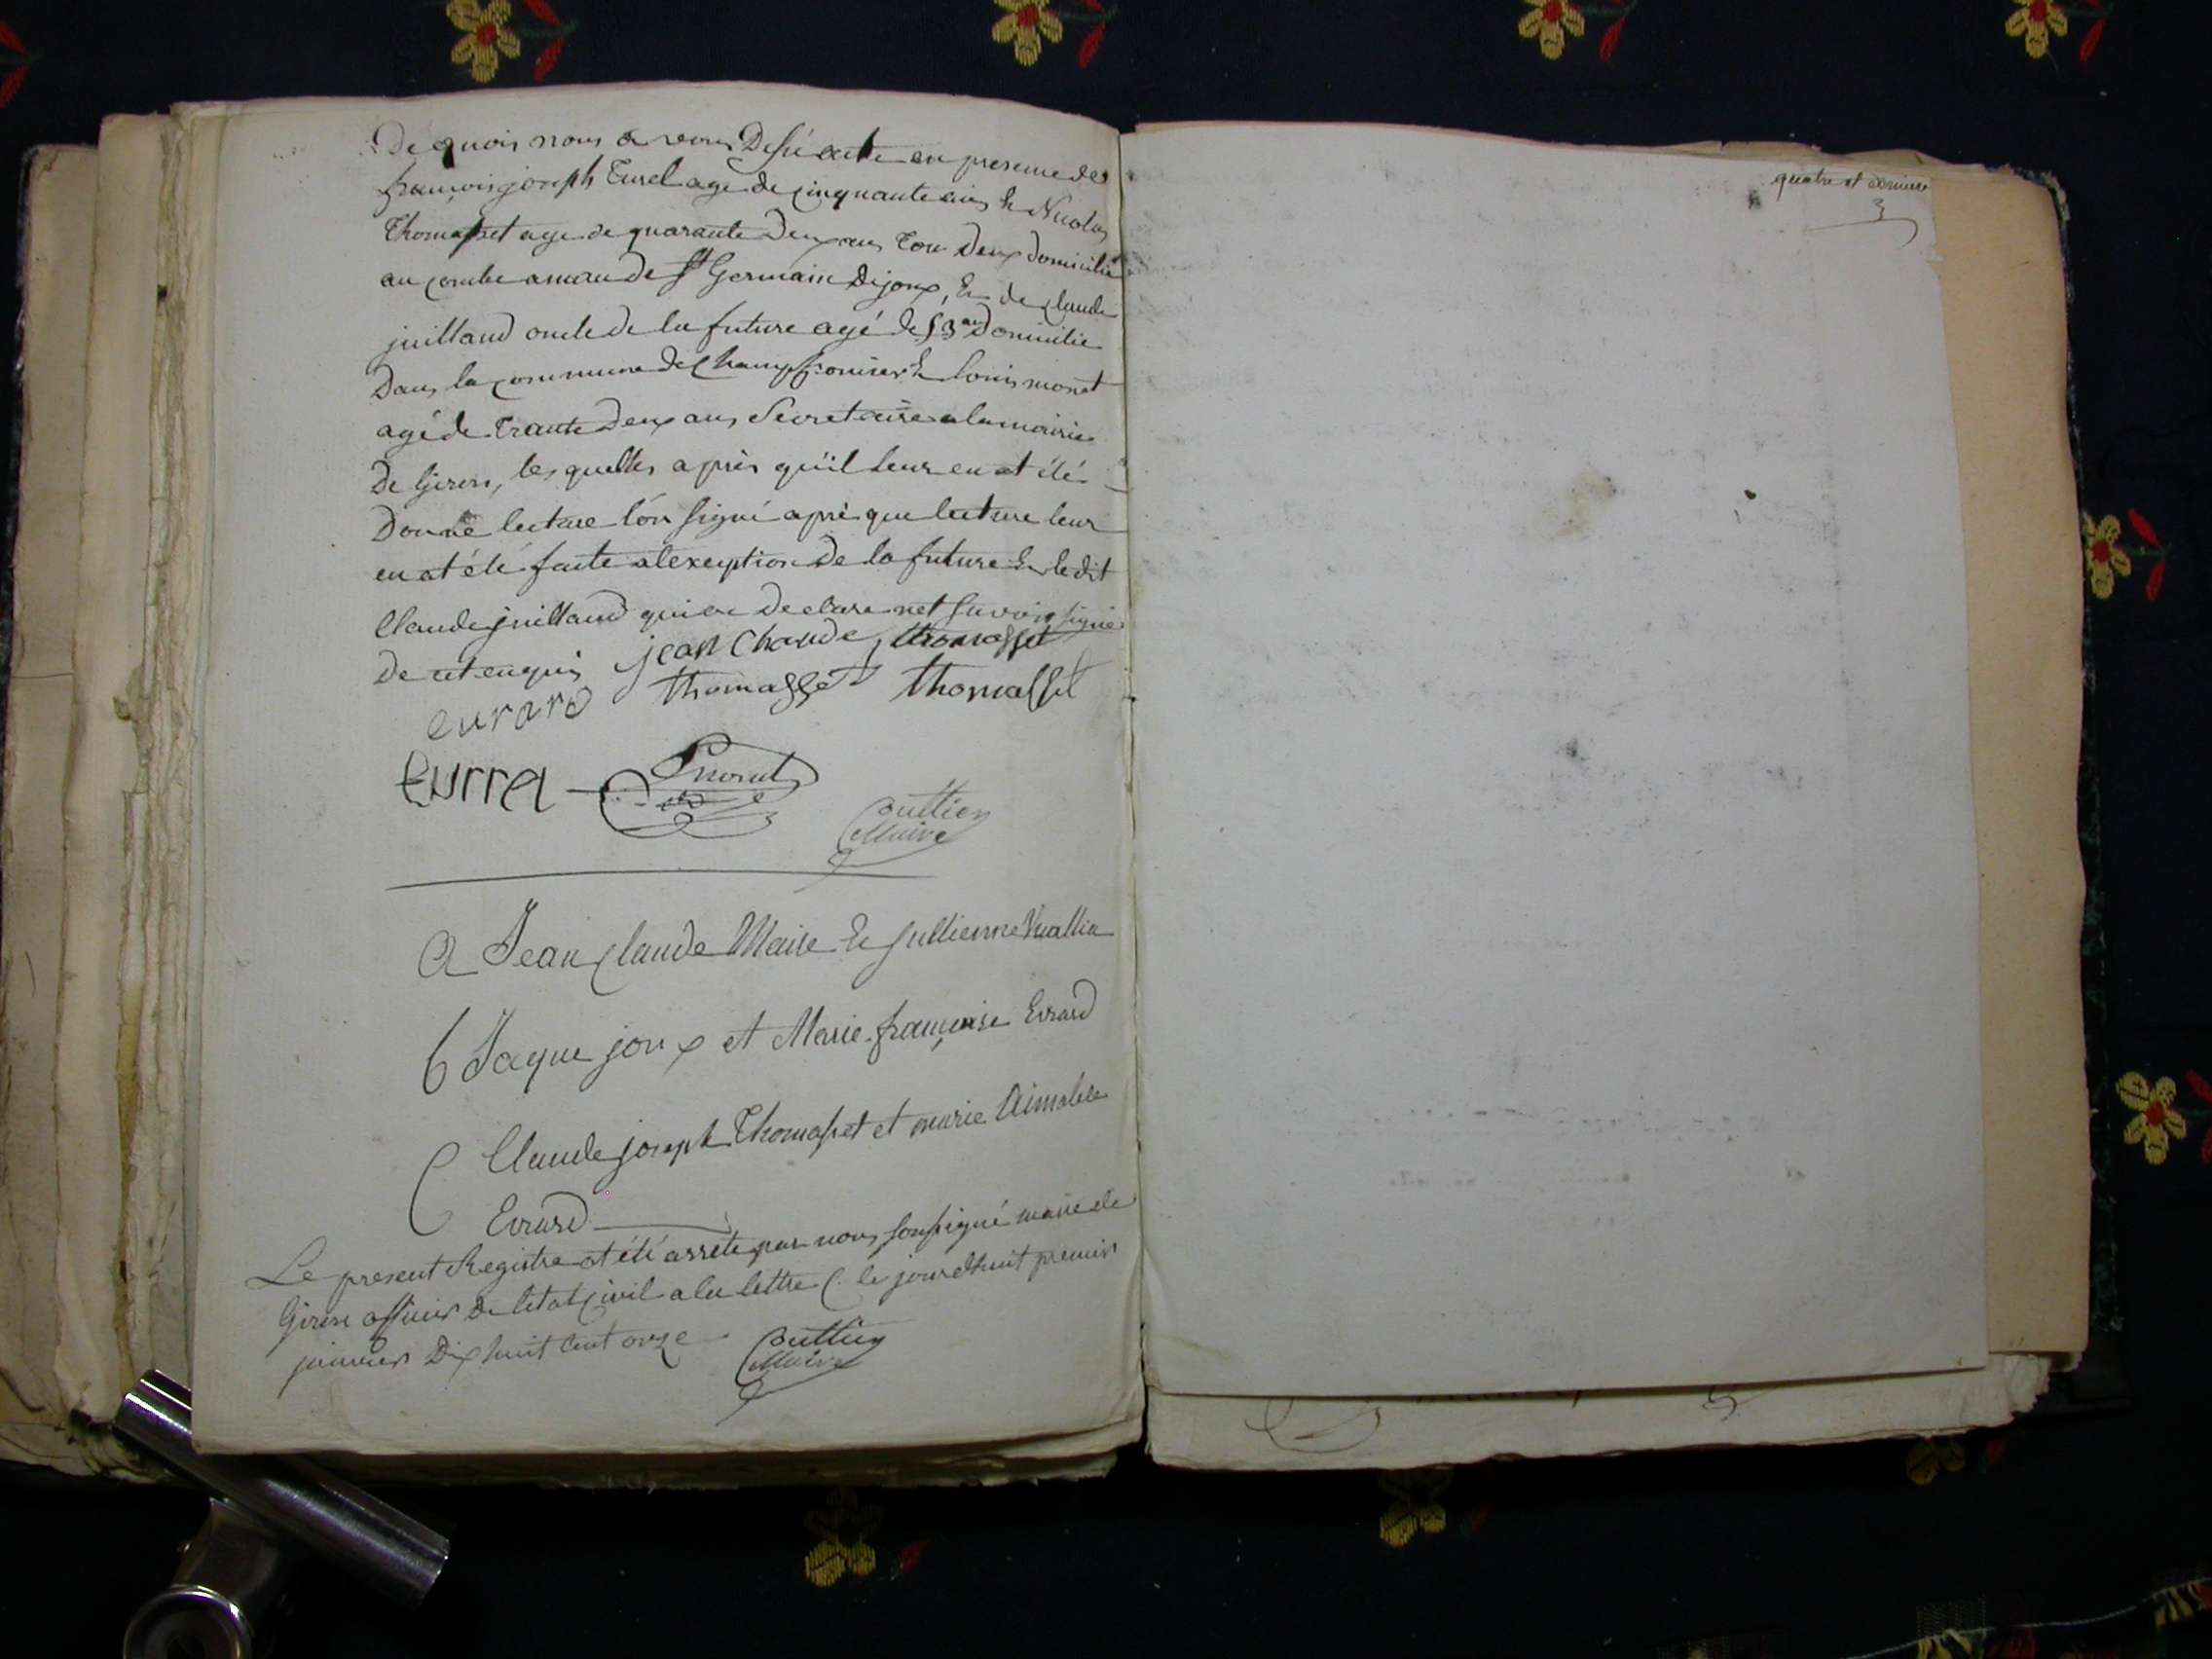 De quois nous a vons Désié acte en presence des
françois joseph Turel age de cinquante ans & Nicolas
Thomasset age de quarante Deux ans Tou Deux domicilié
au combe amau de St Germain Dejoux, & de Claude
juilland oncle de la future agé de 53 ans Domicilie
Dans la commune de Champfromier & Louis monet
agé de Trante Deux ans Secretaire a la mairie
De Giron, les quelles après qu'il leur en at été
Donné lecture l'on signé aprè que lecture leur
en at été faite a l'exception De la future & le dit
Claude juilland qui on declare net savoir signé
De cet enquis jean Chaude thomasset
evrard thomasset thomasset
turrel monet
Outtier
Maire
A Jean Claude Maire & Jullienne Vuallia
B Jaque joux et Marie françoise Evrard
C Claude joseph Thomasset et marie Aimable
Evrard
Le present Registre at été arrêté par nous soussigné maire de
Giron officier De l'etat Civil a la lettre C. le jourdhuit premier
janvier Dix huit Cent onze Outtier
Maire
quatre et derniere